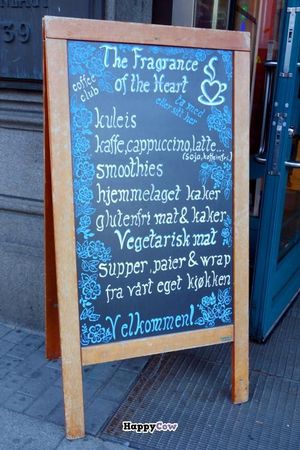 39
The Fragrance
of the Heart
coffee
club
ta med
eller sitt her
kuleis
kaffe, cappuccino, latte...
(soja, koffeinfri)
smoothies
hjemmelaget kaker
glutenfri mat & kaker
Vegetarisk mat
supper, paier & wrap
fra vårt eget kjøkken
Velkommen!
HappyCow